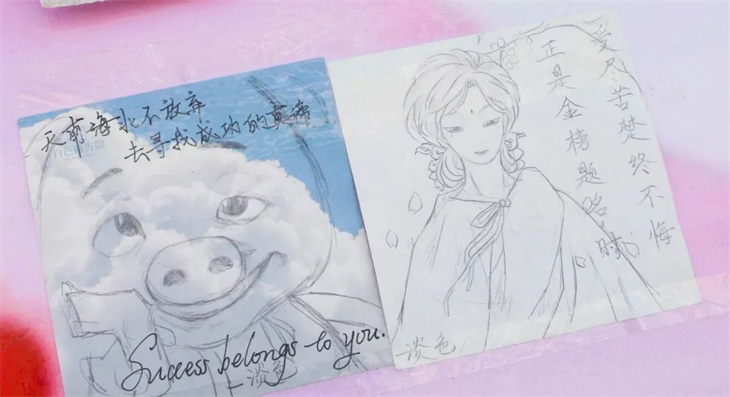 天南海北不放弃
去寻找成功的真谛
Success belongs to you.
—淡色
受尽苦楚终不悔
正是金榜题名时
淡色